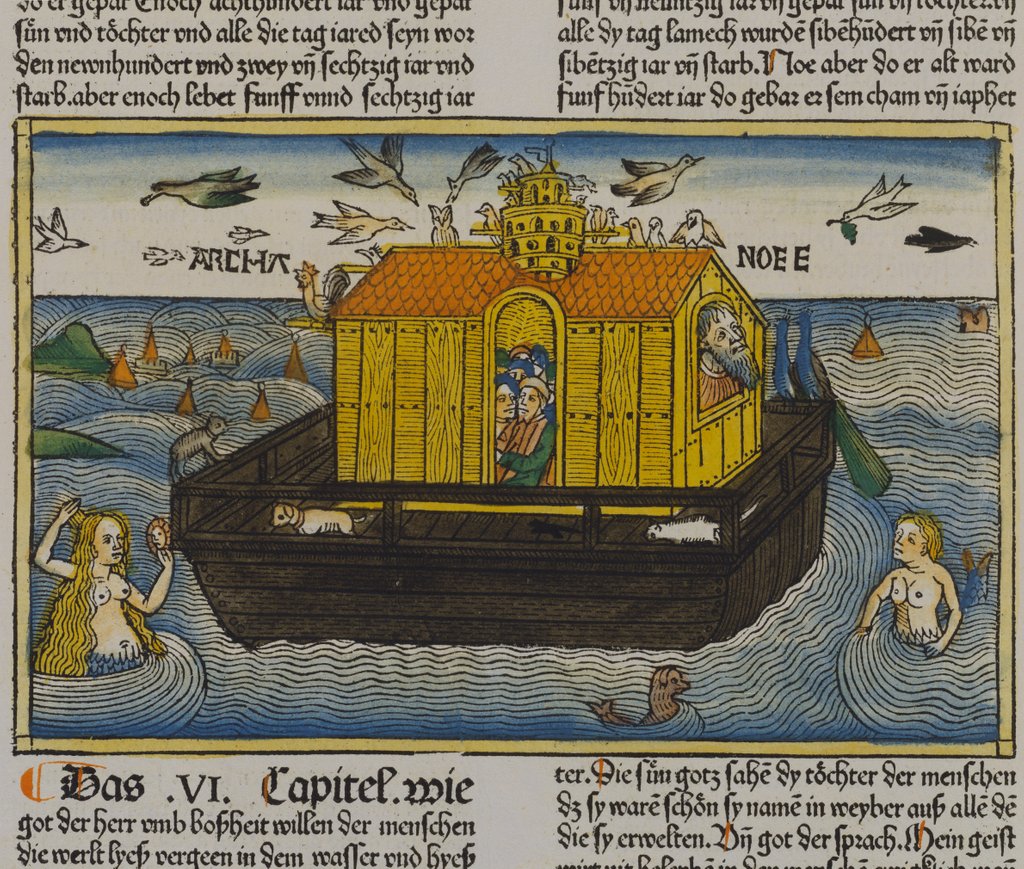 do er gepar Enoch achthundert iar vnd gepar
sün vnd töchter vnd alle die tag iared seyn wor
den newnhundert vnd zwey vñ sechtzig iar vnd
starb. aber enoch lebet funff vnnd sechtzig iar
suns vñ neüntzig iar vñ gepar sün vñ töchter. vñ
alle dy tag lamech wurdē sibēhundert vñ sibē vñ
sibētzig iar vñ starb. Noe aber do er alt ward
funf hūdert iar do gebar er sem cham vñ iaphet
ARCHA NOEE
Das .VI. Capitel. wie
got der herr vmb boßheit willen der menschen
die werlt lyeß vergeen in dem wasser vnd hyeß
ter. Die sün gotz sahē dy töchter der menschen
dz sy warē schön sy namē in weyber auß allē dē
die sy erwelten. Vñ got der sprach. Mein geist